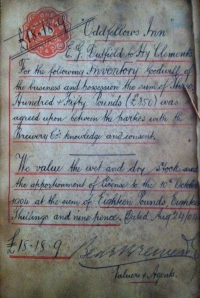 £18.18.9
Oddfellows Inn
E. J. Dutfield to Hy Clements
For the following Inventory Goodwill of
the business and possession the sum of Three
Hundred & Fifty Pounds (£350) was
agreed upon between the parties with the
Brewery Co's knowledge and consent.
We value the wet and dry Stock and
the apportionment of License to the 10th October
at the sum of Eighteen Pounds Eighteen
Shillings and nine pence. Dated Aug
£18-18-9.
Valuers & Agents.